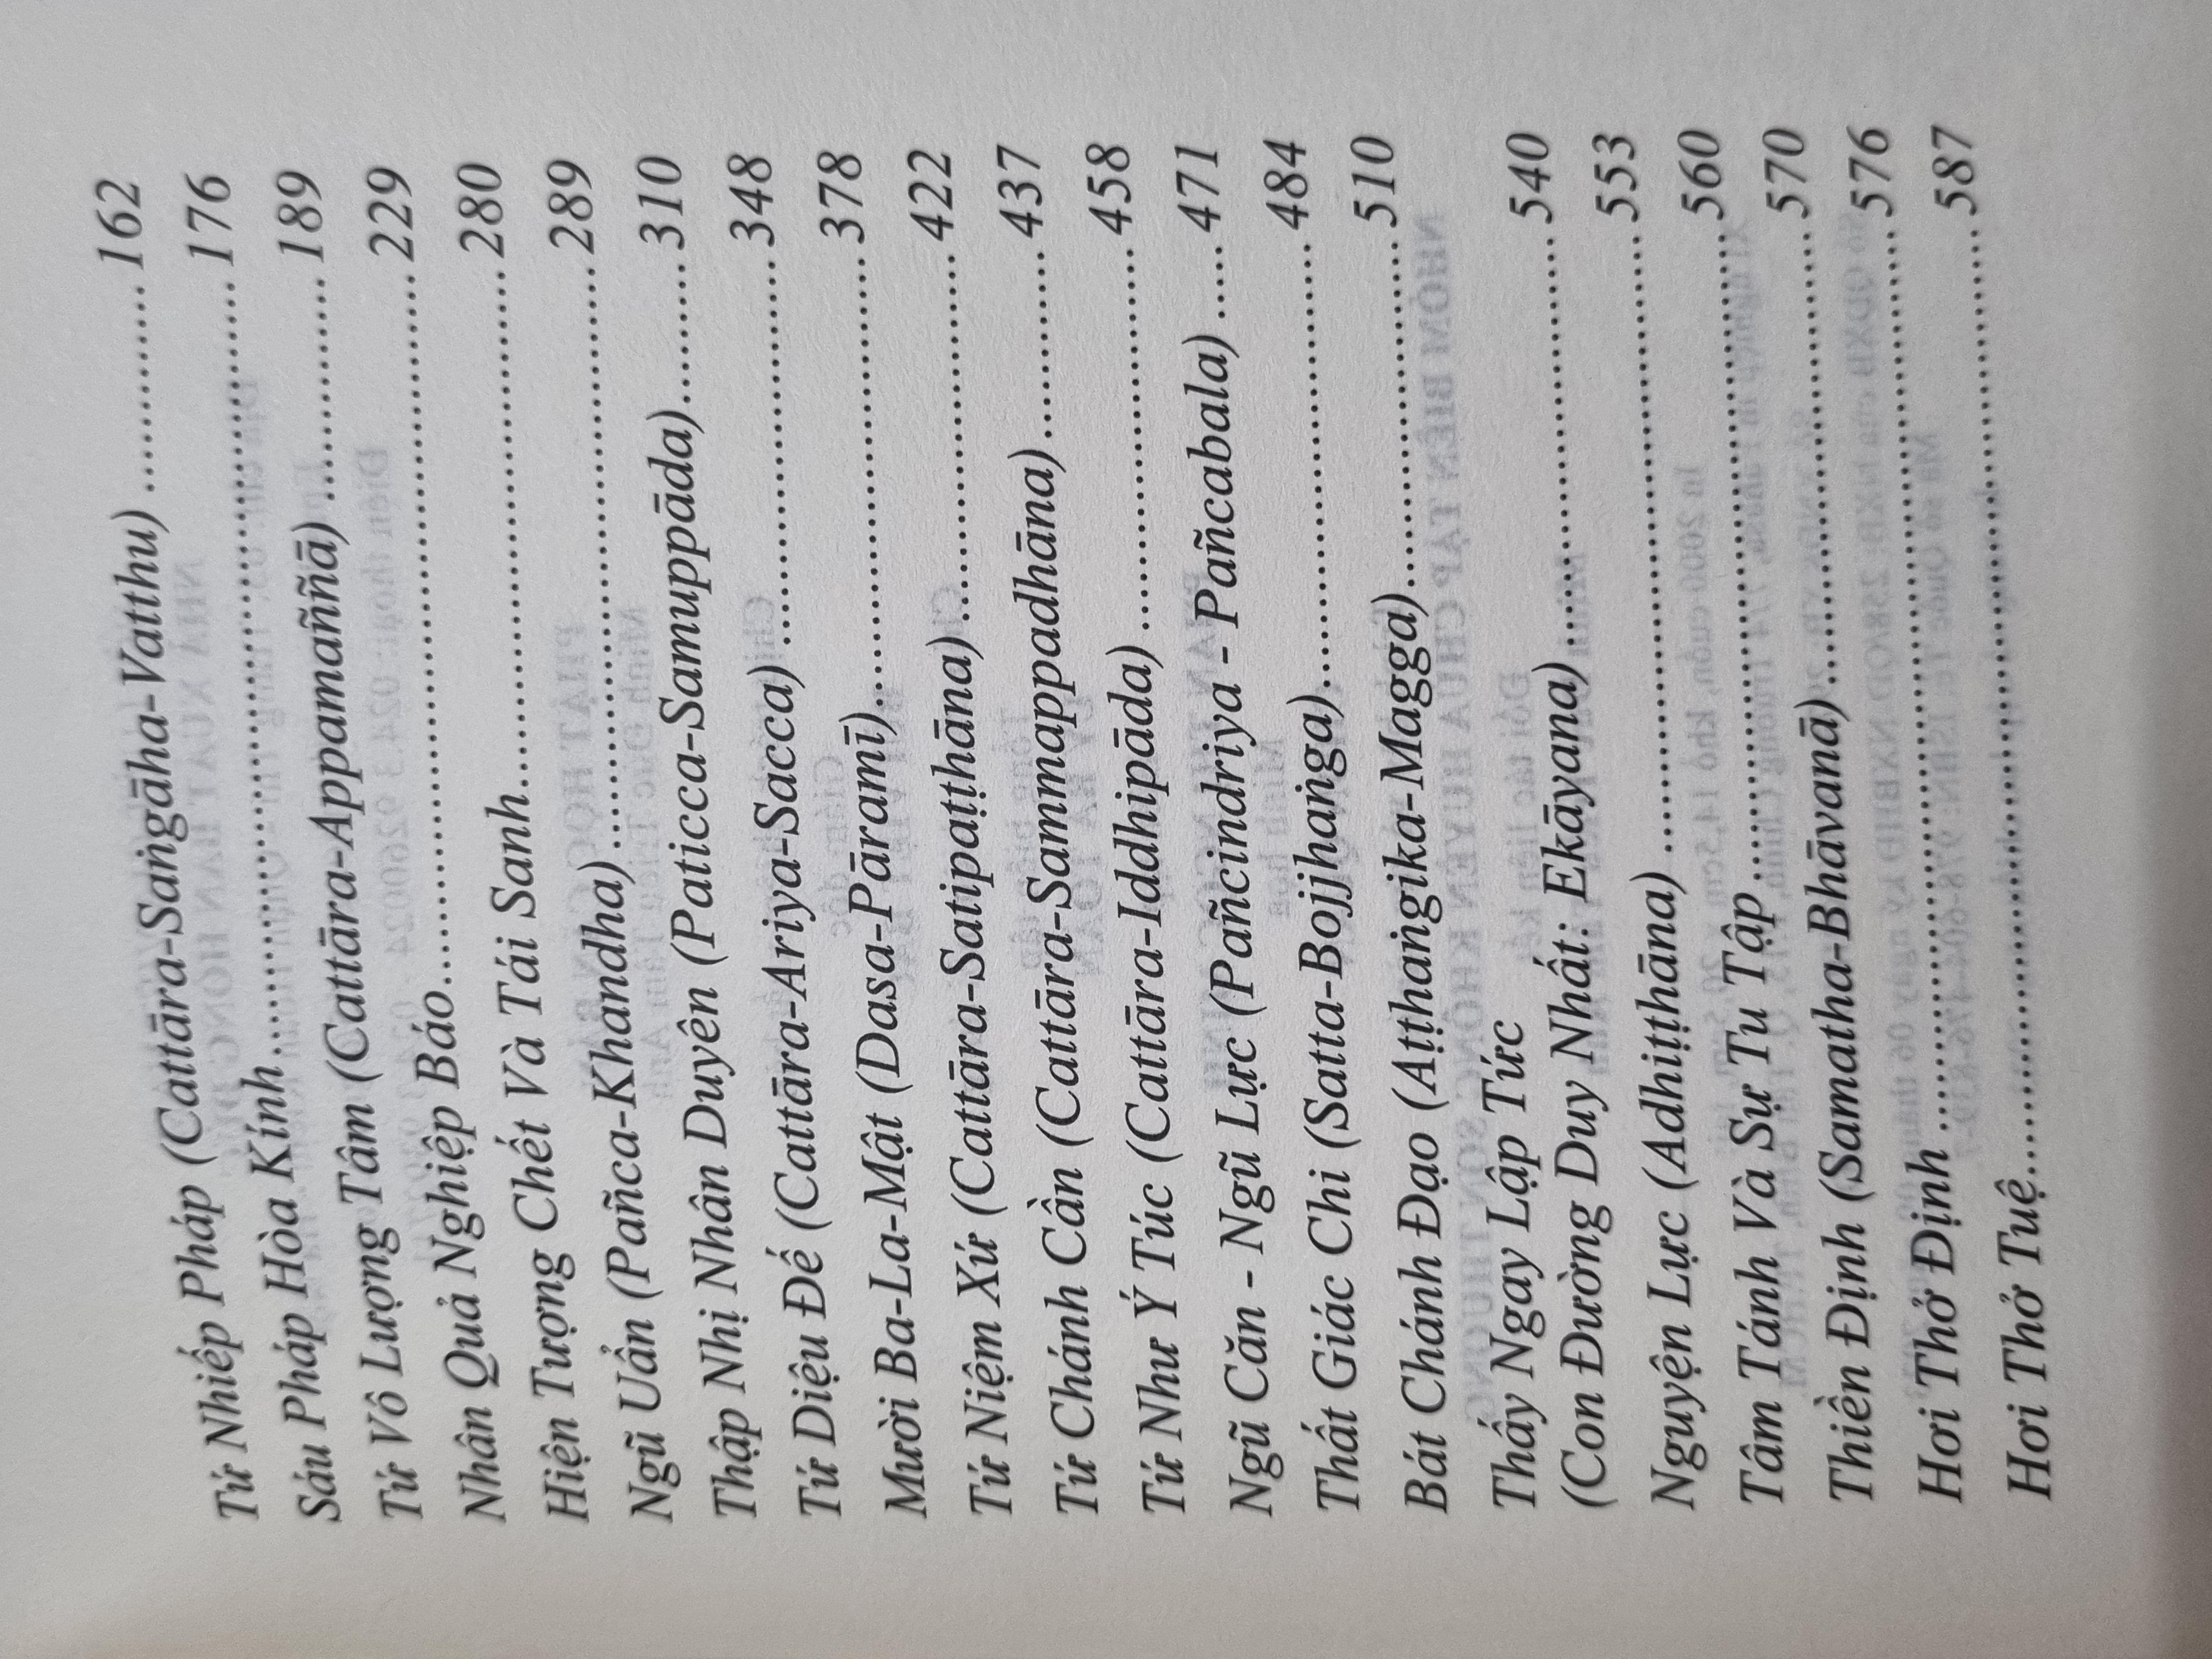 Tứ Nhiếp Pháp (Cattāra-Saṅgāha-Vatthu) ............. 162
Sáu Pháp Hòa Kính................................................. 176
Tứ Vô Lượng Tâm (Cattāra-Appamaññā) .............. 189
Nhân Quả Nghiệp Báo............................................. 229
Hiện Tượng Chết Và Tái Sanh................................. 280
Ngũ Uẩn (Pañca-Khandha) ..................................... 289
Thập Nhị Nhân Duyên (Paticca-Samuppāda)......... 310
Tứ Diệu Đế (Cattāra-Ariya-Sacca) ......................... 348
Mười Ba-La-Mật (Dasa-Pāramī)............................. 378
Tứ Niệm Xứ (Cattāra-Satipaṭṭhāna) ....................... 422
Tứ Chánh Cần (Cattāra-Sammappadhāna)............ 437
Tứ Như Ý Túc (Cattāra-Iddhipāda) ........................ 458
Ngũ Căn - Ngũ Lực (Pañcindriya - Pañcabala) ..... 471
Thất Giác Chi (Satta-Bojjhaṅga)............................ 484
Bát Chánh Đạo (Aṭṭhaṅgika-Magga)...................... 510
Thấy Ngay Lập Tức
(Con Đường Duy Nhất: Ekāyana) .......................... 540
Nguyện Lực (Adhiṭṭhāna) ....................................... 553
Tâm Tánh Và Sự Tu Tập ......................................... 560
Thiền Định (Samatha-Bhāvanā) ............................. 570
Hơi Thở Định ......................................................... 576
Hơi Thở Tuệ............................................................ 587